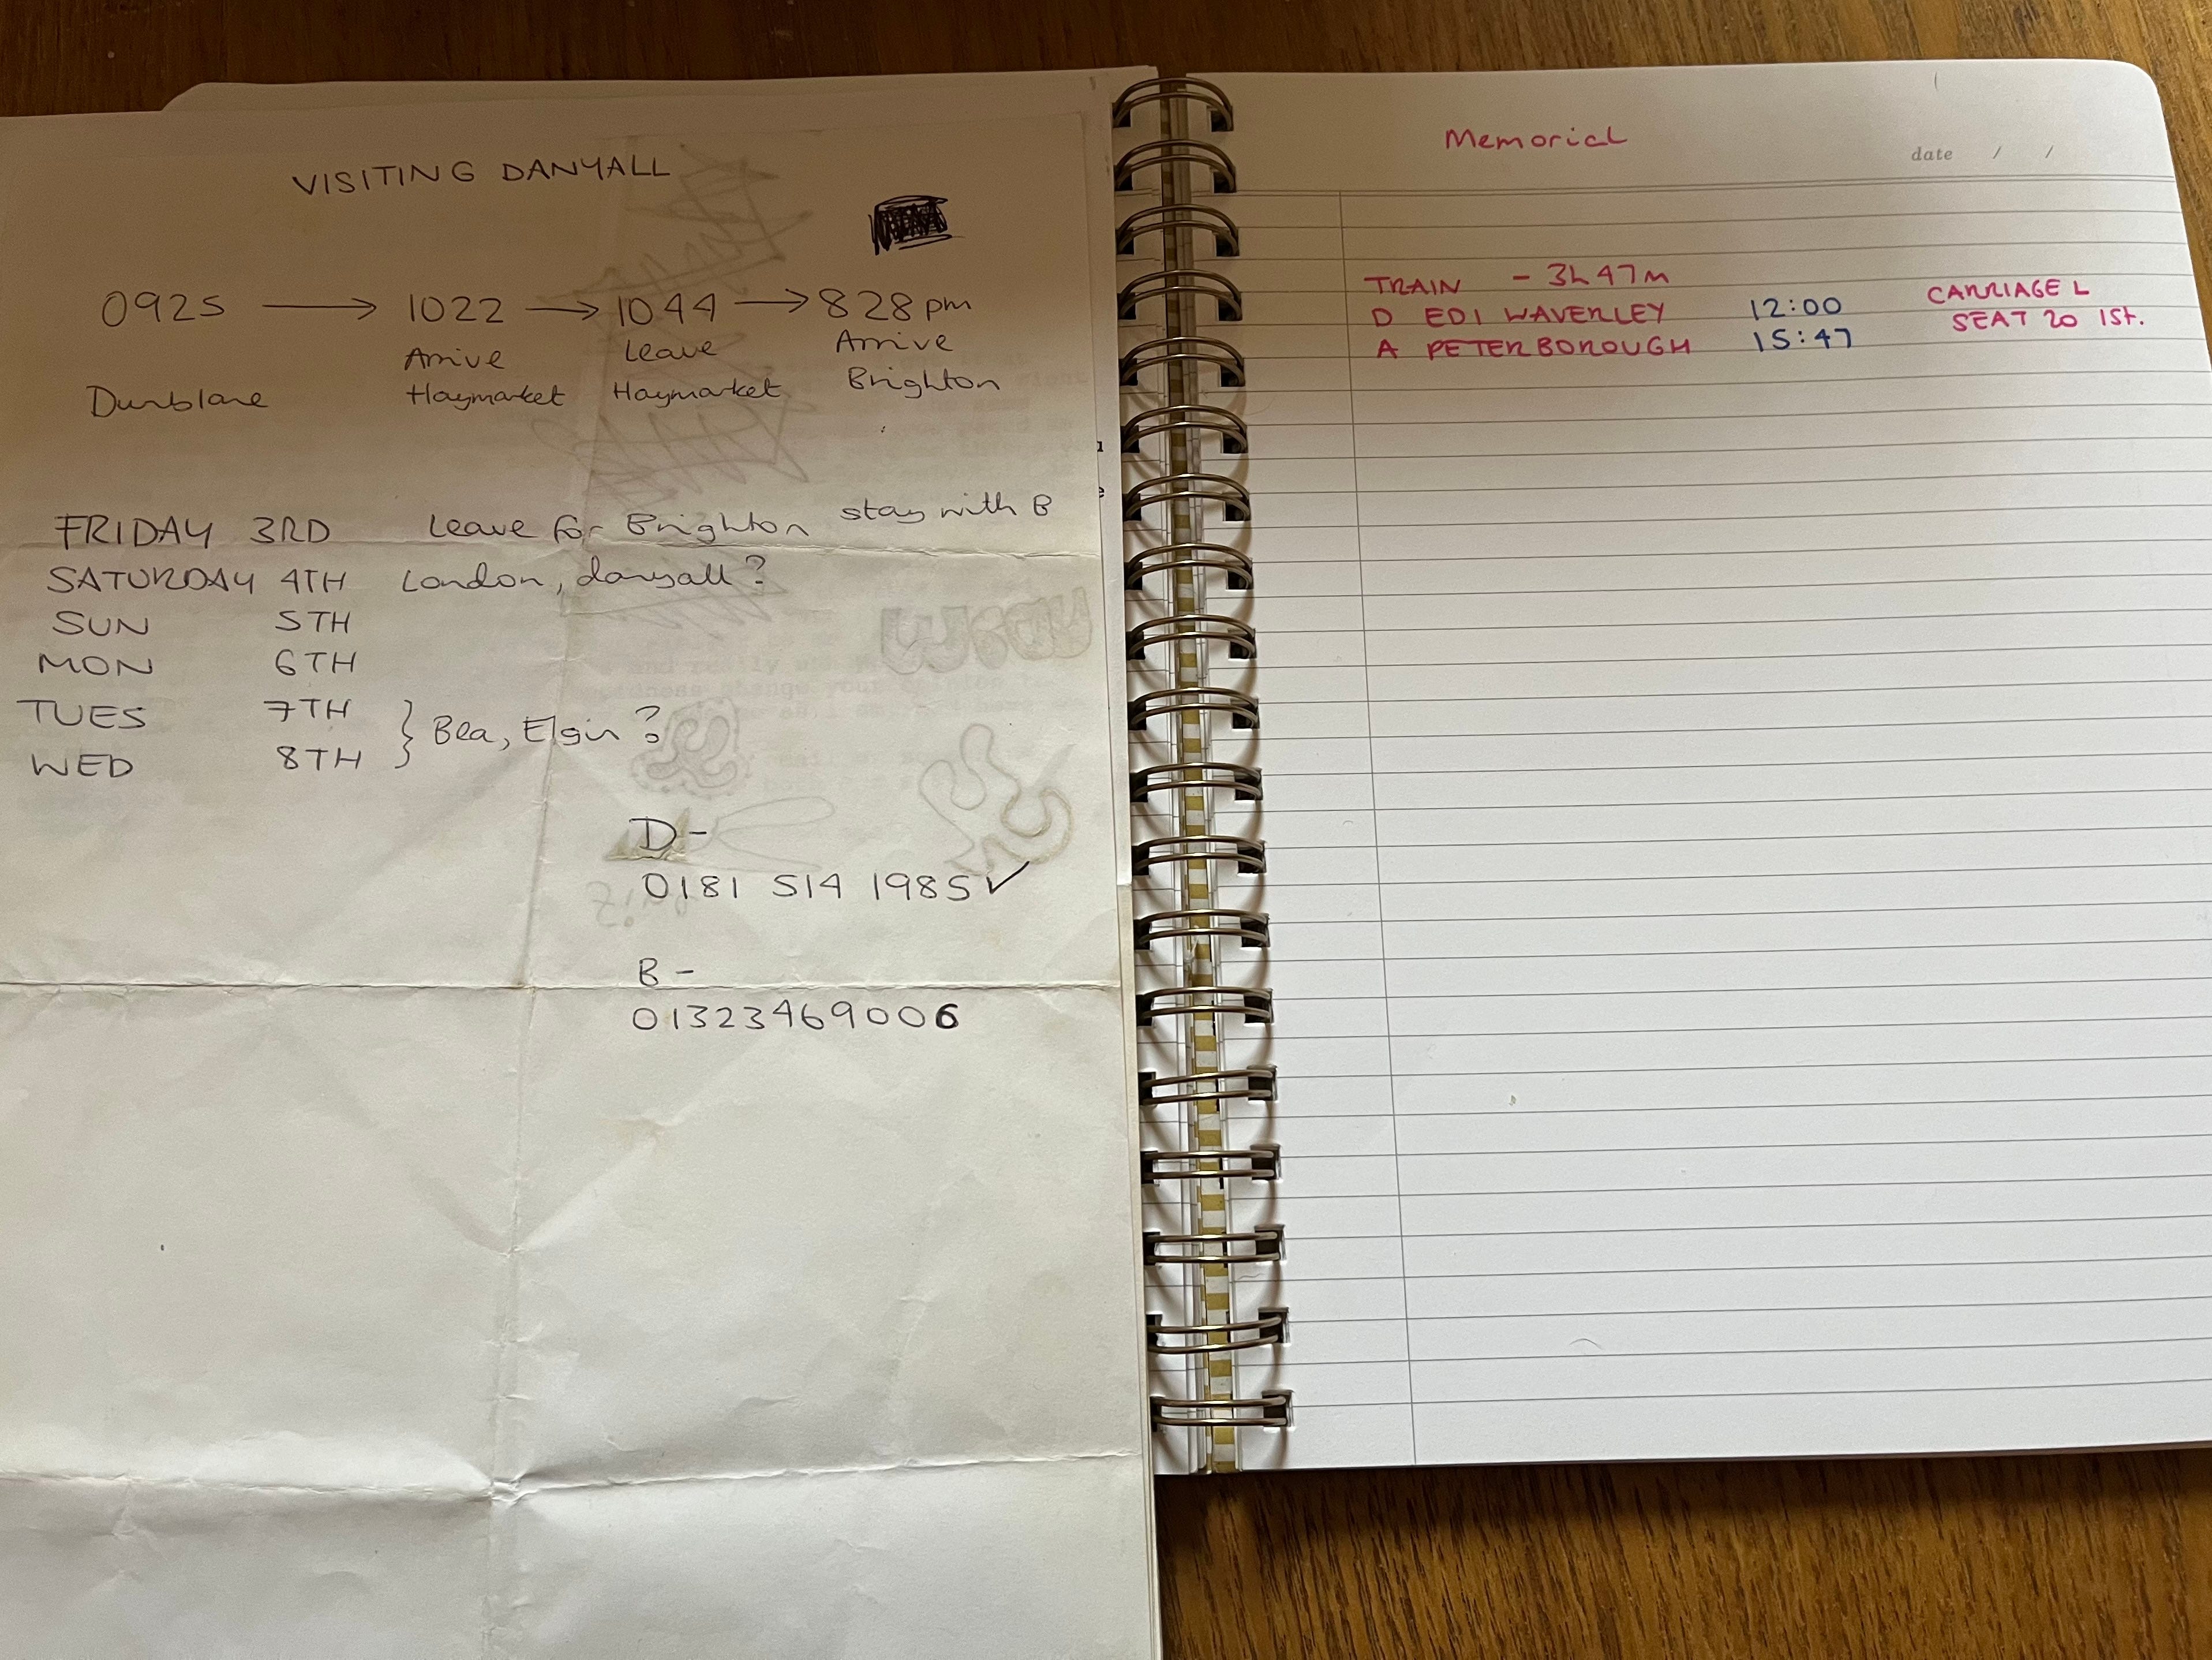 VISITING DANYALL
0925 → 1022 → 1044 → 828pm
Arrive Leave Arrive
Dunblane Haymarket Haymarket Brighton
FRIDAY 3RD Leave for Brighton stay with B
SATURDAY 4TH London, danyall?
SUN 5TH
MON 6TH
TUES 7TH
WED 8TH } Bea, Elgin?
D-
0181 514 1985 ✓
B-
01323469006
Memorial
date / /
TRAIN - 3h 47m
D EDI WAVERLEY 12:00 CARRIAGE L
A PETERBOROUGH 15:47 SEAT 20 1St.